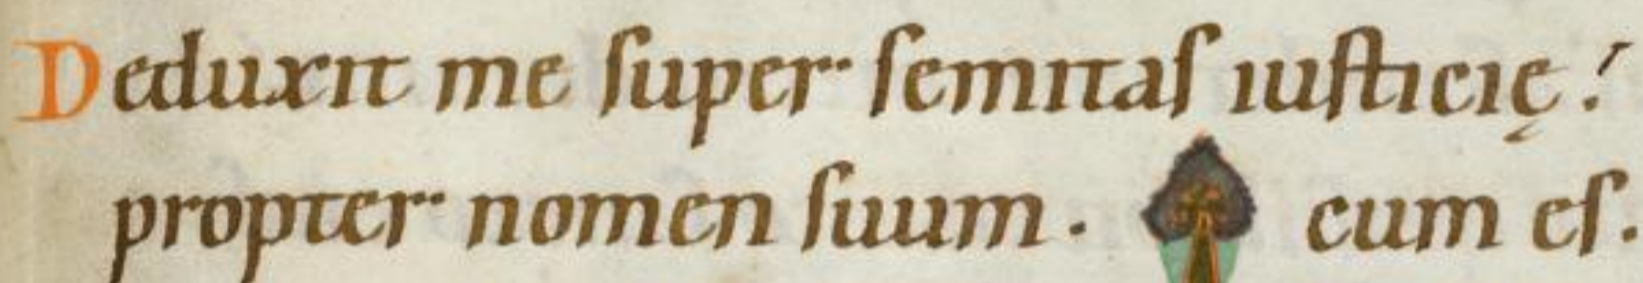 Deduxit me super semitas iusticię:
propter nomen suum. cum es.